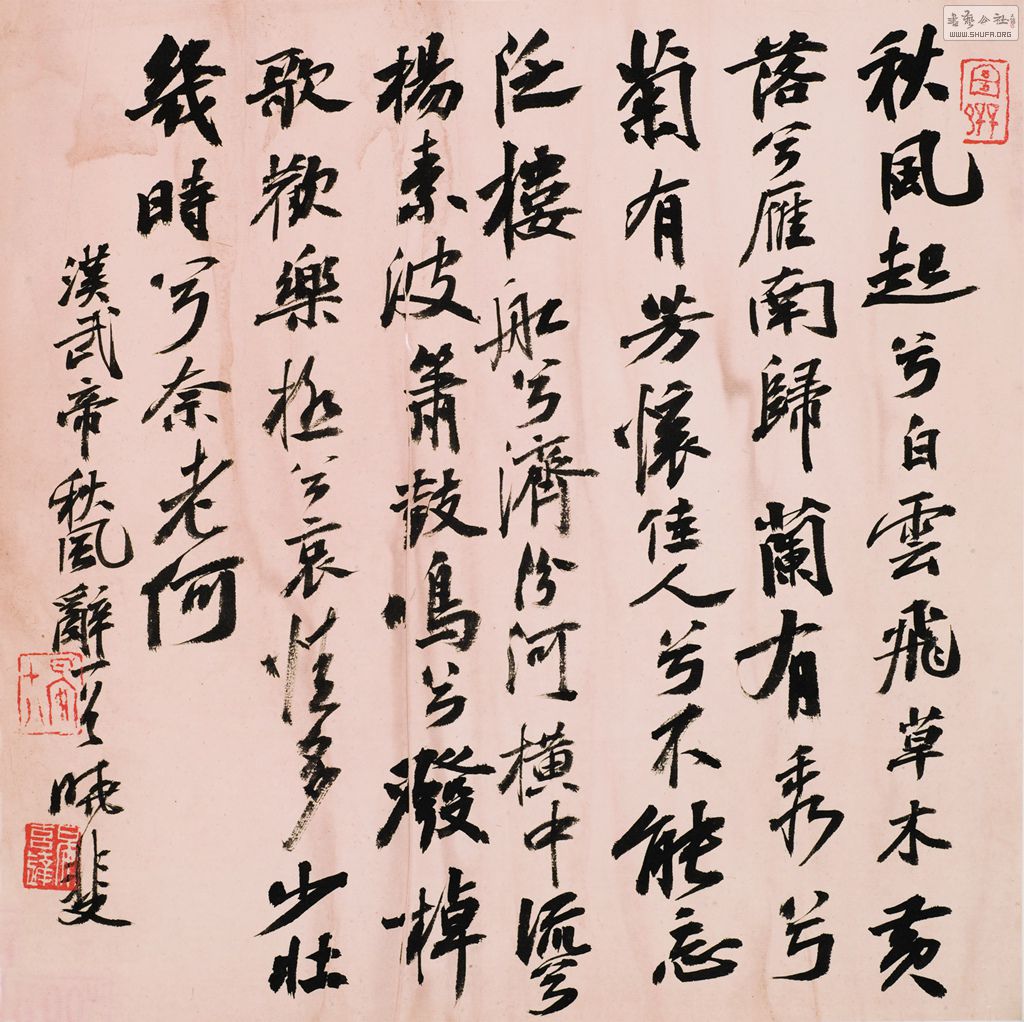 秋風起兮白雲飛草木黄
落兮雁南歸蘭有秀兮
菊有芳懷佳人兮不能忘
泛樓舡兮濟汾河橫中流兮
楊素波簫鼓鳴兮潑棹
歌歡樂極兮哀情多少壯
幾時兮奈老何
漢武帝秋風辭一首 曉斐
書藝公社
WWW.SHUFA.ORG